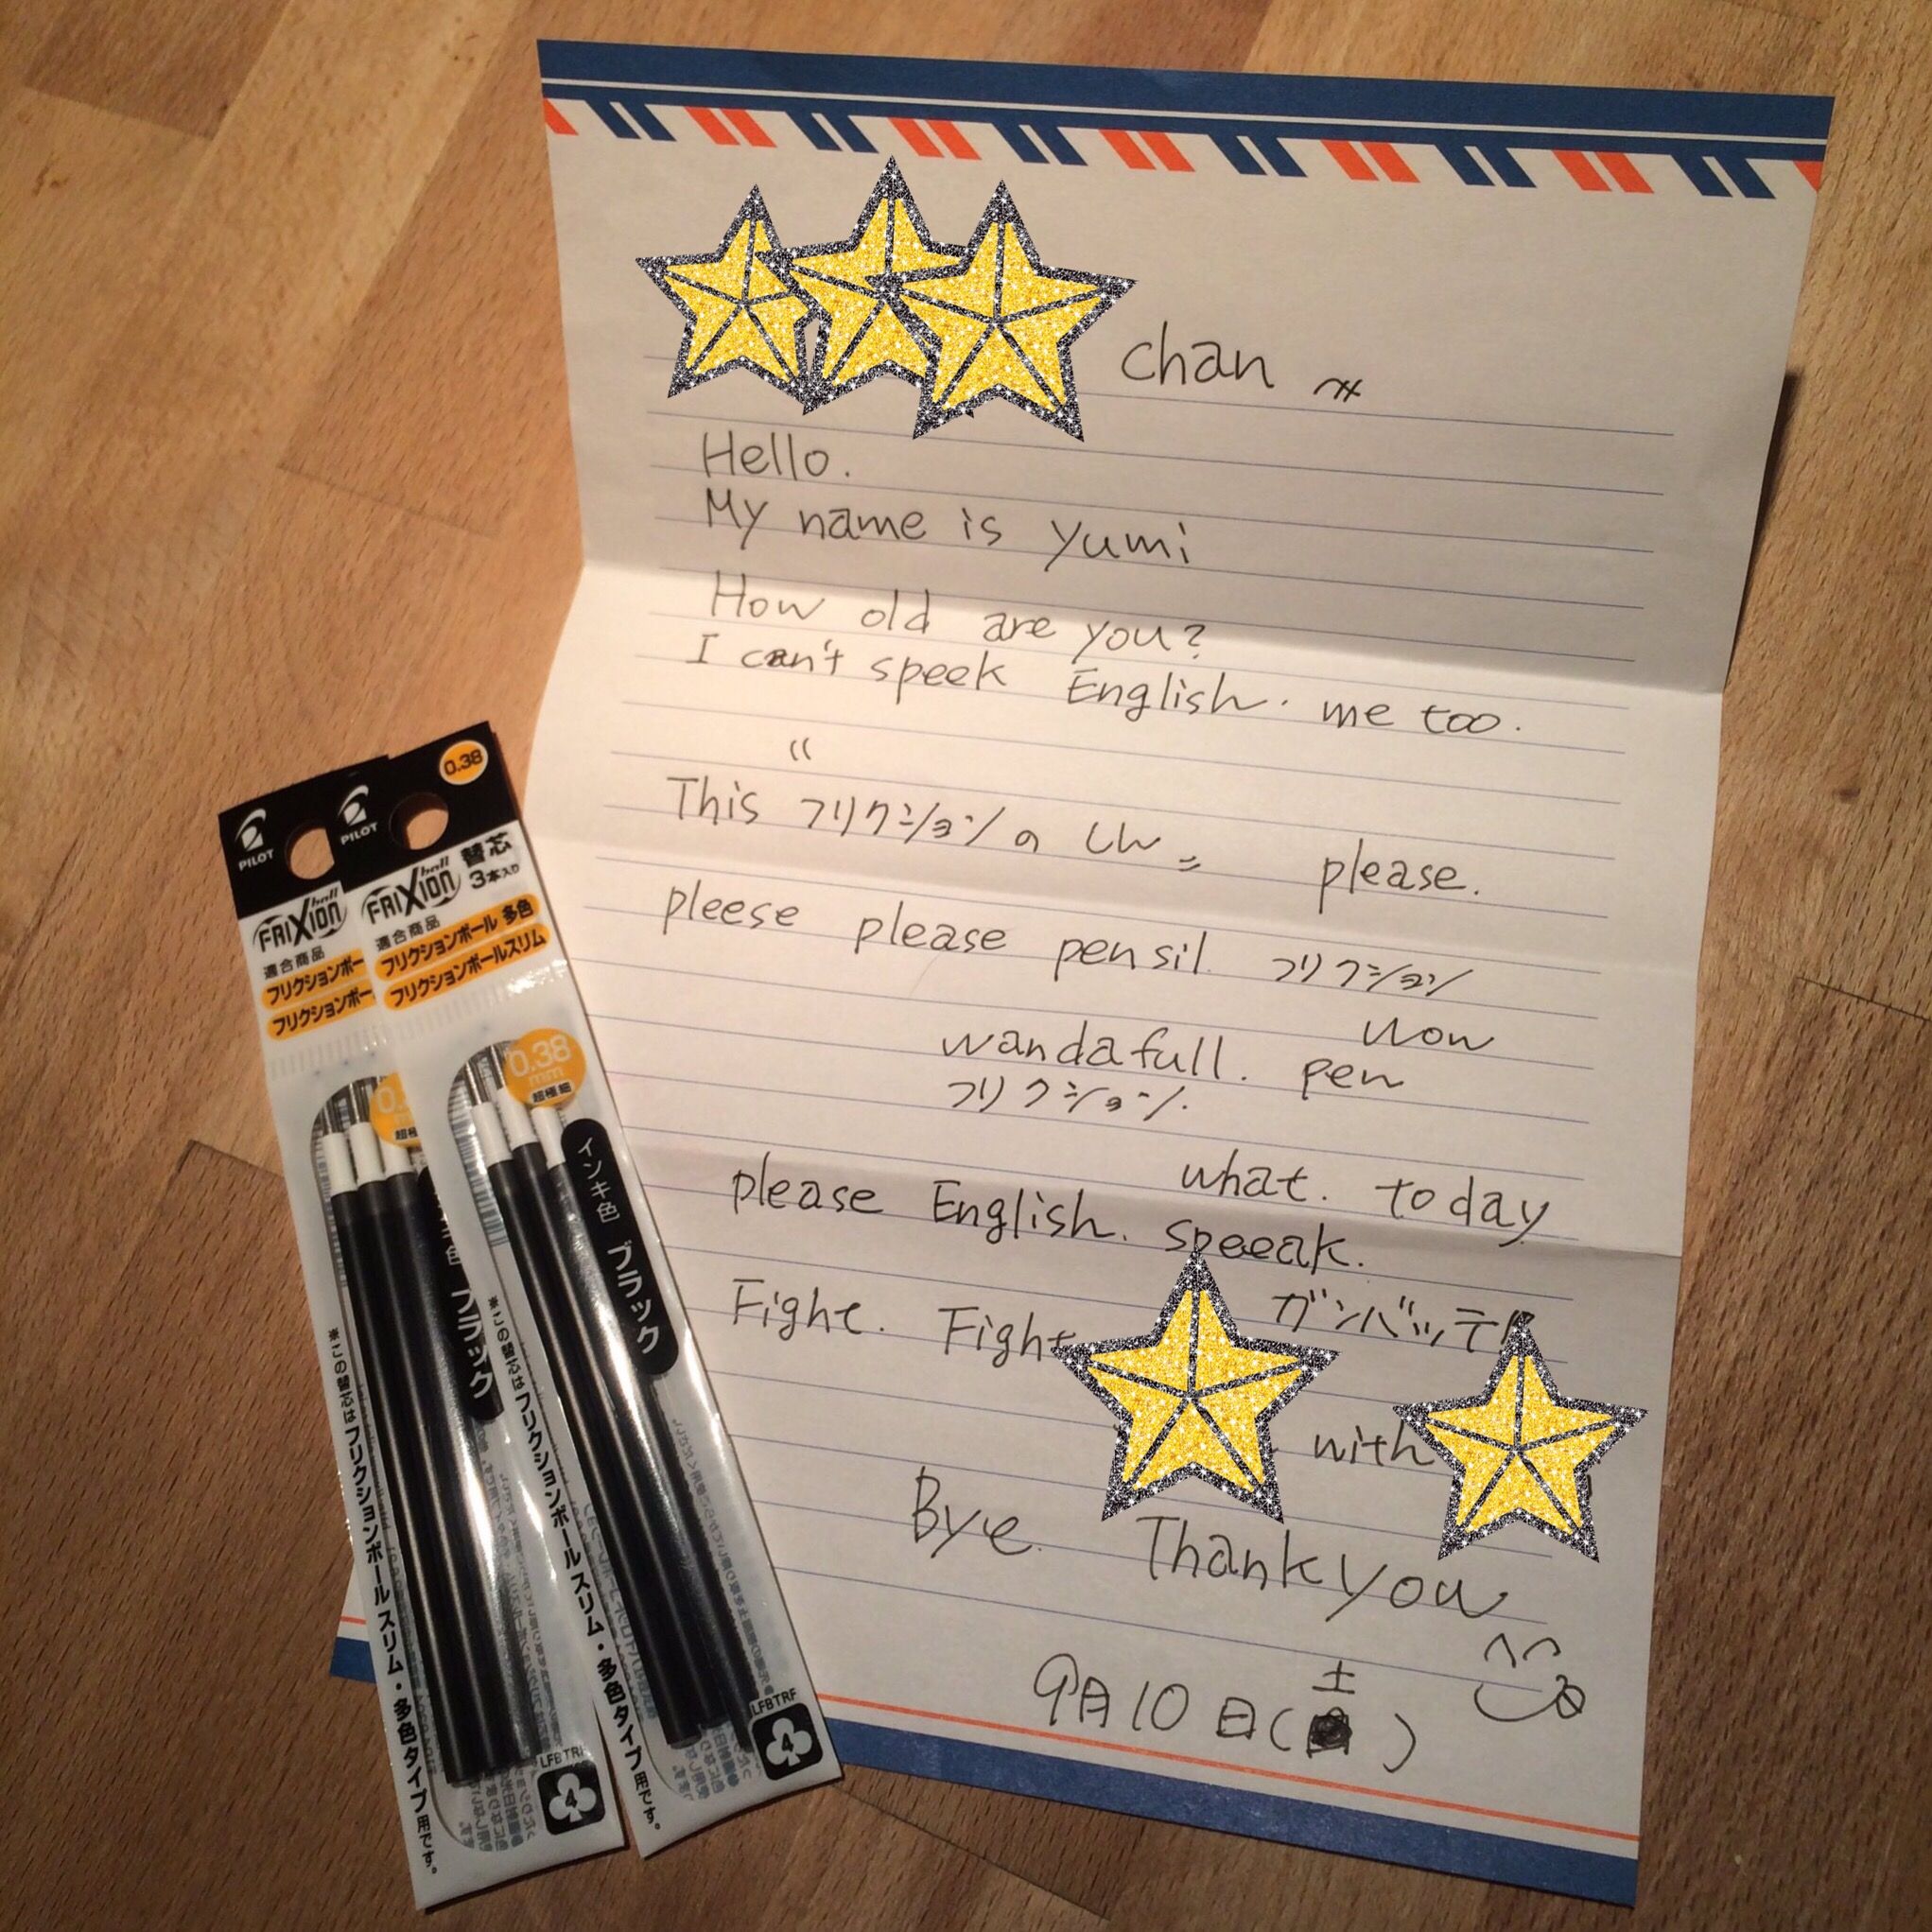 chan
Hello.
My name is Yumi
How old are you?
I can't speek English. me too.
This フリクションの しん please.
pleese please pensil. フリクション
wow
wandafull. pen
フリクション.
what. today
please English. speeak.
Fight. Fight ガンバッテ
with
Bye. Thank you
9月10日(土)
PILOT
FRIXion ball
適合商品
フリクションボー
フリクションボー
0.38
PILOT
FRIXion ball 替芯
3本入り
適合商品
フリクションボール 多色
フリクションボールスリム
0.38
mm
超極細
インキ色 ブラック
ブラック
※この替芯はフリクションボール スリム・多色タイプ用です。
※この替芯はフリクションボール スリム・多色タイプ用です。
LFBTRF
4
LFBTRF
4